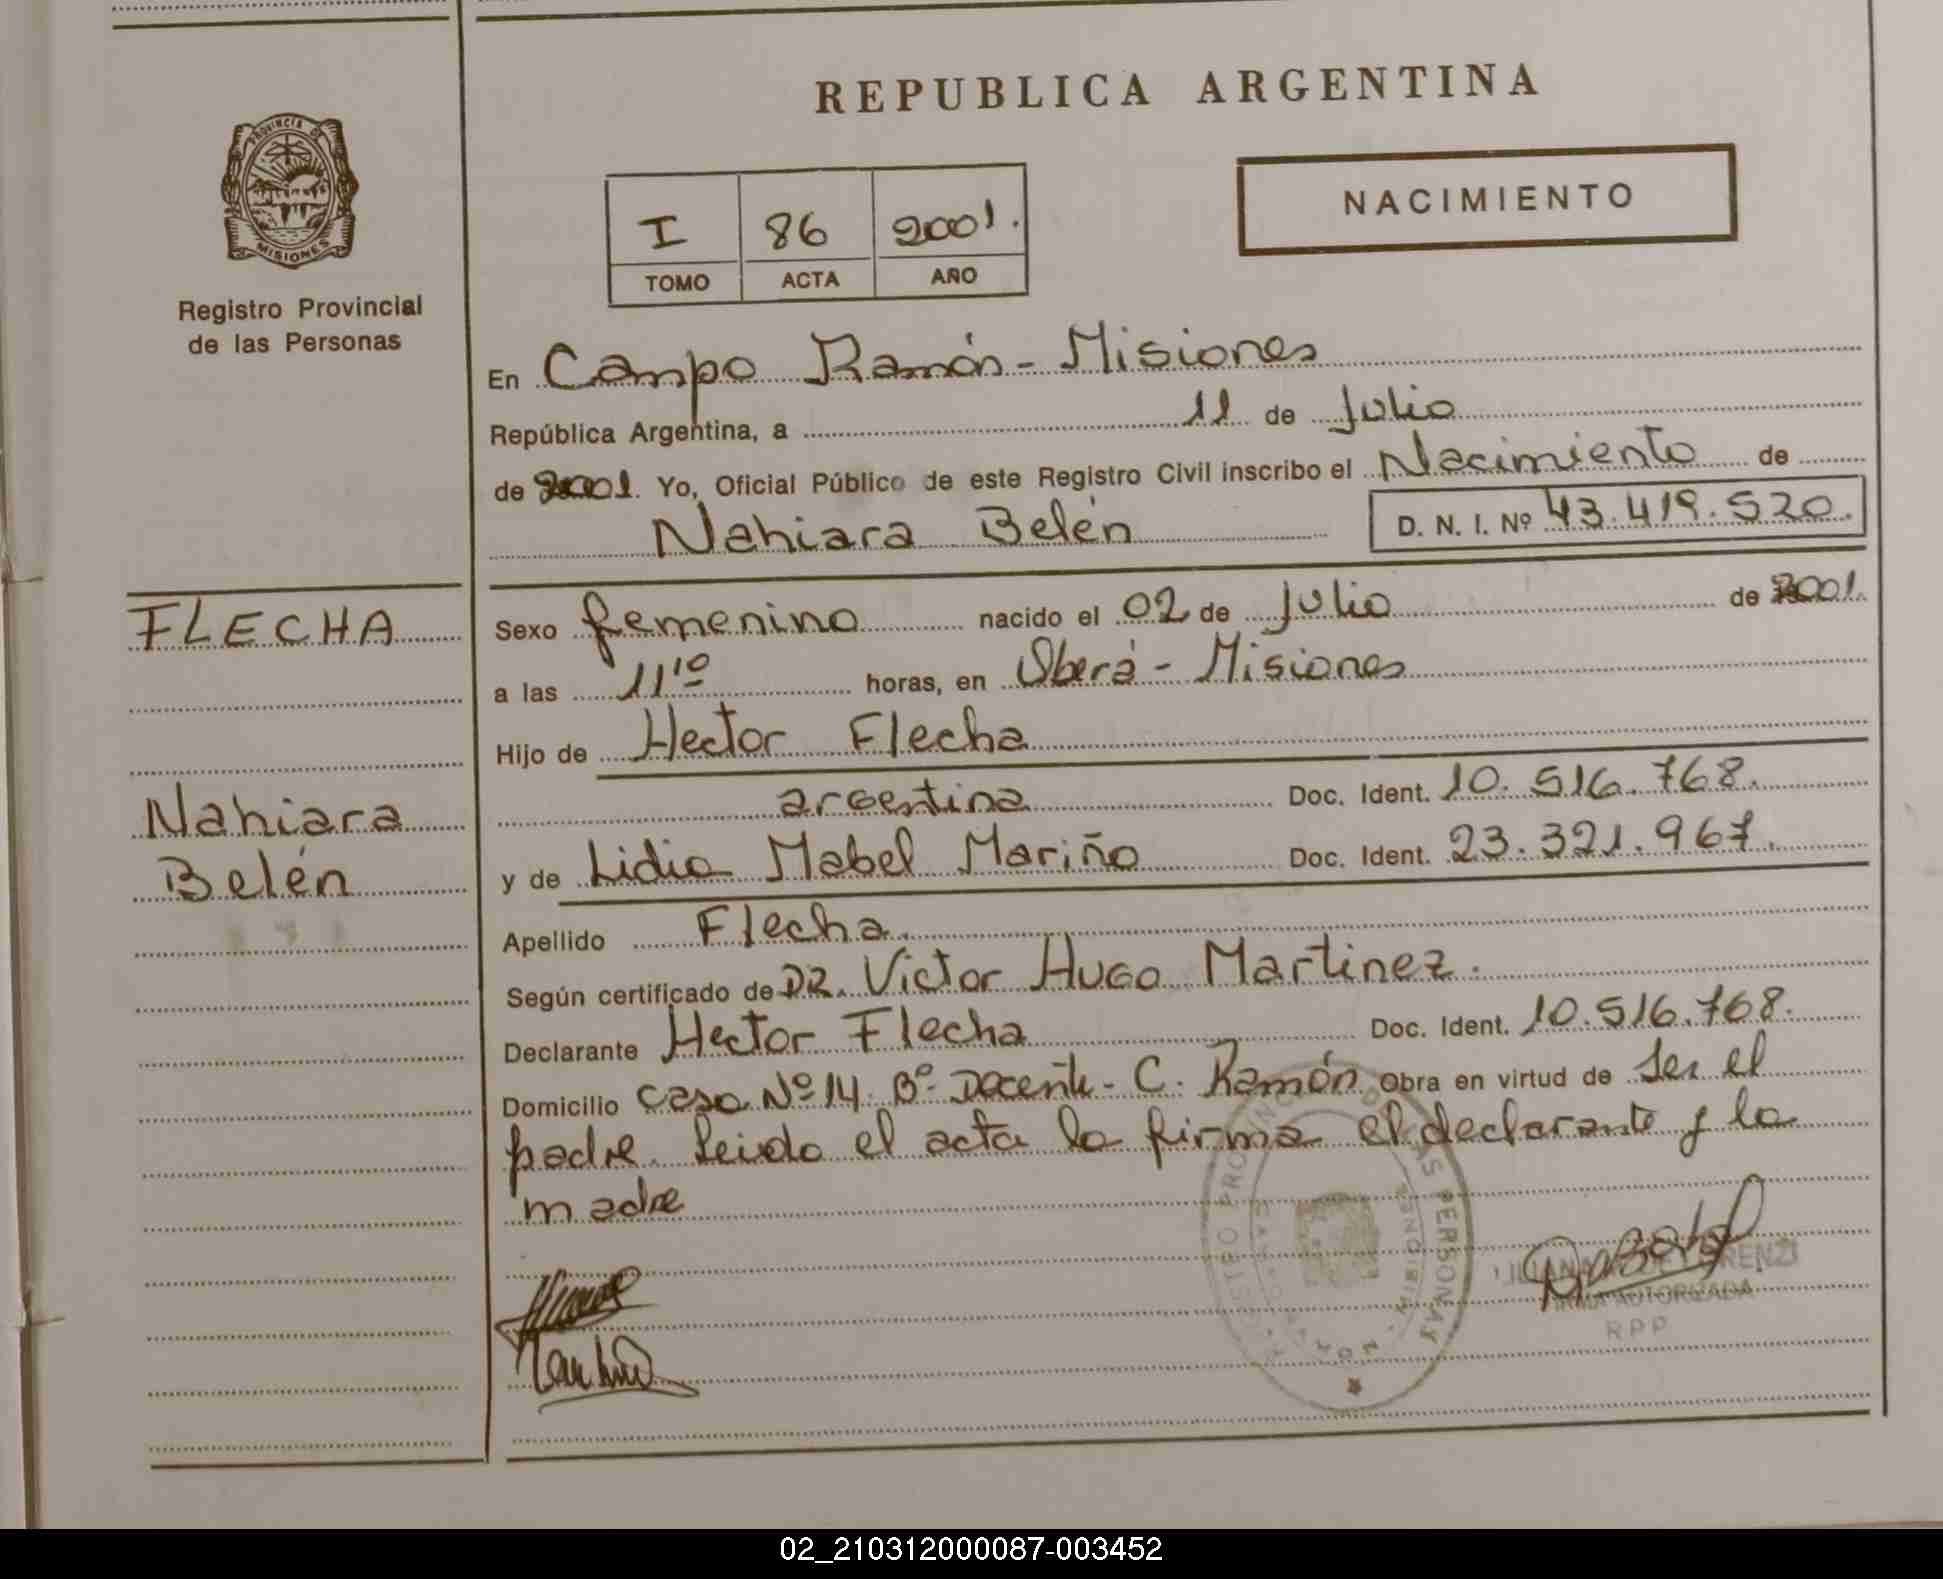 REPUBLICA ARGENTINA
PROVINCIA DE
MISIONES
Registro Provincial
de las Personas
I 86 2001.
TOMO ACTA AÑO
NACIMIENTO
En Campo Ramón - Misiones
República Argentina, a 11 de Julio
de 2001. Yo, Oficial Público de este Registro Civil inscribo el Nacimiento de
Nahiara Belén D. N. I. Nº 43.419.520.
FLECHA
Nahiara
Belén
Sexo femenino nacido el 02 de Julio de 2001.
a las 11'º horas, en Oberá - Misiones
Hijo de Hector Flecha
argentina Doc. Ident. 10.516.768.
y de Lidia Mabel Mariño Doc. Ident. 23.321.967.
Apellido Flecha.
Según certificado de DR. Victor Hugo Martinez.
Declarante Hector Flecha Doc. Ident. 10.516.768.
Domicilio Casa Nº 14. Bº Docente - C. Ramón Obra en virtud de Ser el
padre. Leido el acta la firma el declarante y la
madre
FIRMA AUTORIZADA
RPP
02_210312000087-003452